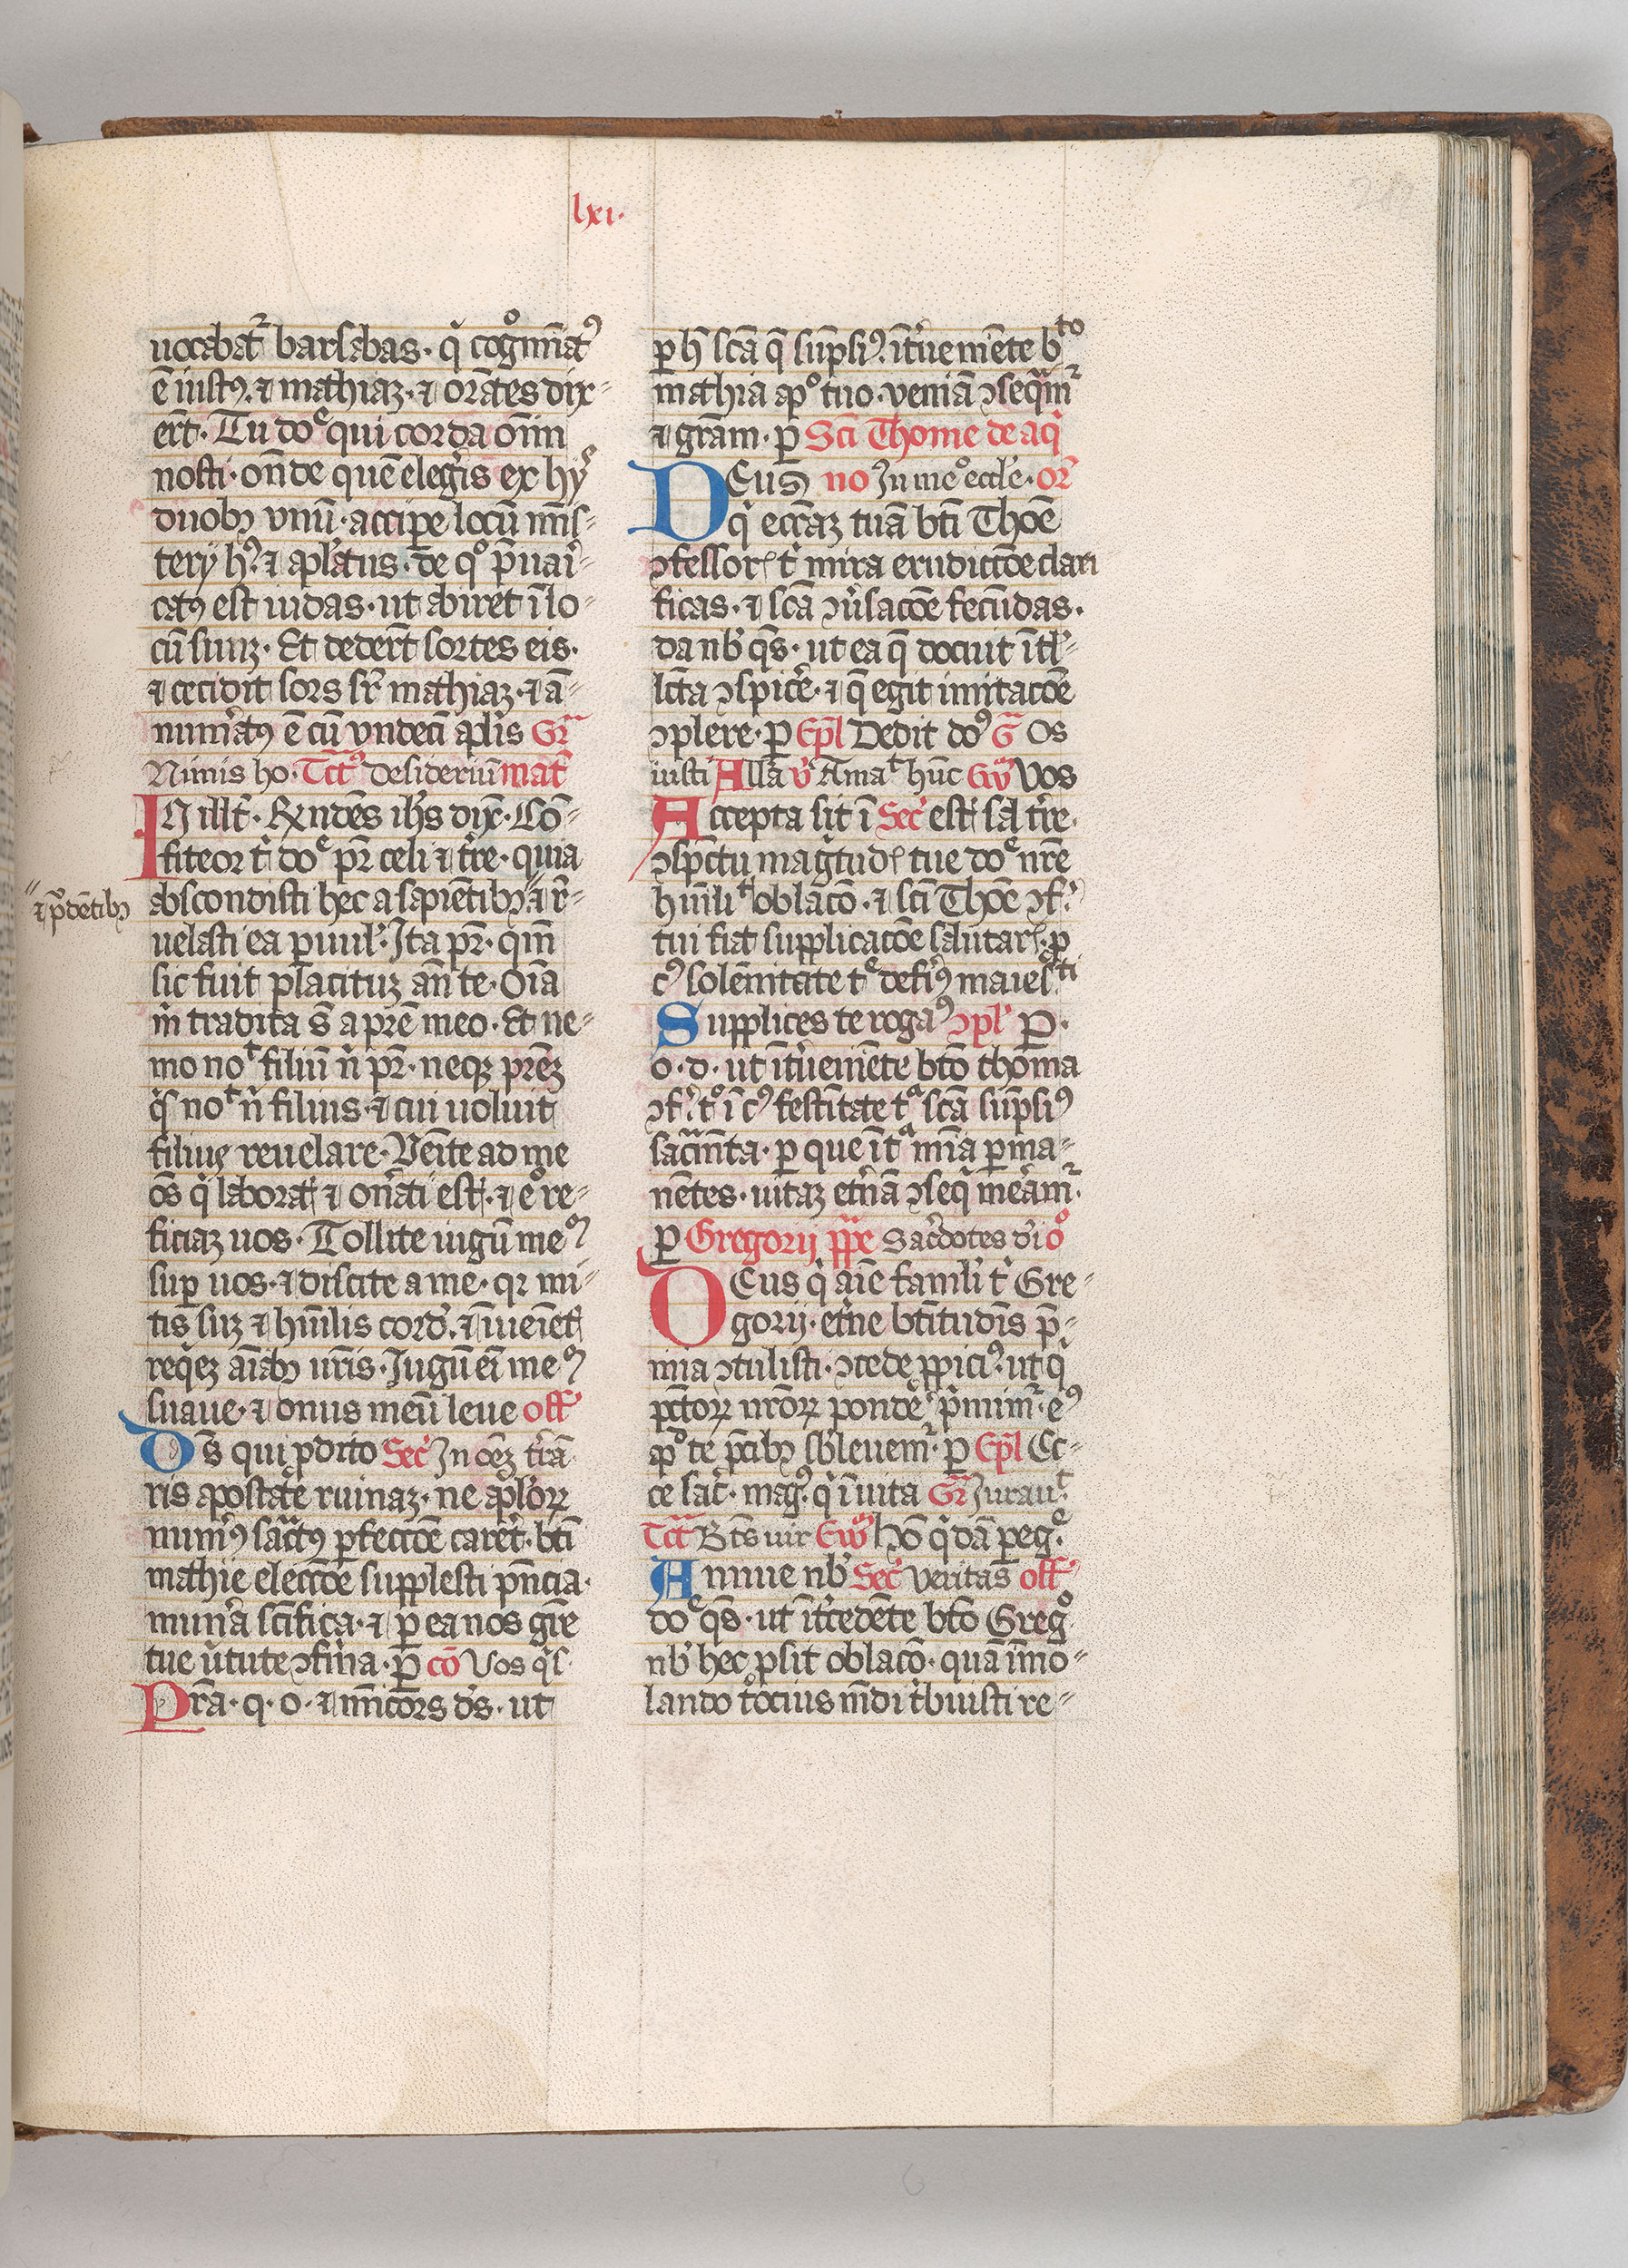 lxi·
uocabat᷑ barsabas· q̇ cogͦmīatꝰ
ē iustꝰ· ⁊ mathiaꝫ· ⁊ orātes dix⸗
ert̄· Tu doͤ qui corda om̄iu
nosti· on̄de quē elegis ex hijͦ
duobꝫ vnū· accipe locū mīs⸗
terij hꝰ· ⁊ apl'atus· de qͦ p̄uai⸗
catꝰ est iudas· ut abiret ī lo⸗
cū suuꝫ· Et deder̄t sortes eis·
⁊ cecidit sors sr̄ mathiaꝫ· ⁊ ā⸗
num̄atꝰ ē cū vndeci apl'is Gr̄
Nimis ho· Tct̄ꝰ desideriū mat̄
IN ill't· Rn̄dēs ih's dix̄· Cō⸗
fiteor t' doͤ pr̄ celi ⁊ t're· quia
abscondisti hec a sapiētibꝫ ⁊ r'⸗
⁊ pͬdētibꝫ
uelasti ea ꝑuul'· Ita pr̄· qm̄
sic fuit placituꝫ an̄ te· Oīa
m̄ tradita s̄ a pr̄e meo· Et ne⸗
mo noͭ filiū n̄ pr̄· neqꝫ pr̄eꝫ
q̇s noͭ n̄ filius· ⁊ cui uoluit
filius reuelare· Venīte ad me
oēs q̇ laborat' ⁊ on̄ati est'· ⁊ eͦ re⸗
ficiaꝫ uos· Tollite iugū meͫ
suꝑ uos· ⁊ discite a me· qr mi⸗
tis suꝫ ⁊ hūilis cord'· ⁊ īueīet'
req̇eꝫ aīabꝫ ur̄is· Jugū ei meͫ
suaue· ⁊ onus meū leue off'
Ds̄ qui ꝓdito Sec' In oēꝫ t'rā
ris apostate ruinaꝫ· ne apl'oꝝ
num̄ꝰ sactꝰ ꝑfectōe caret'· bt̄i
mathie elecc̄oe supplesti pn̄cia·
mun̄a sc̄ifica· ⁊ ꝑ ea nos gr̄e
tue ut'ute ɔfirma· P̱ cō Vos q̇ s·
Pr̄a· q· o· ⁊ mīcors d's· ut
ꝑ h̄ sc̄a q̄ sūpsiꝰ· īt'uemēte bͭͦ
mathia apͦ tuo· veniā ɔseq̄m᷑
⁊ grām· ꝑ Sci Thome de aq̇
DEus no In meͦ eccl'e· or᷑
q̇ ecc̄aꝫ tuā bt̄i Thōe
ɔfessor' t' mira erudictōe clari
ficas· ⁊ sc̄a ɔu'sacōe fecūdas·
da nb' qs̄· ut ea q̄ docuit ītl'⸗
lc̄ta ɔspic̄e· ⁊ q̄ egit imitacōe
ɔplere· ꝑ Ep̄l Dedit doꝰ G̃ Os
iusti Alla v' Amaͭ hūc Ew̃ Vos
Accepta sit ī Sec' est' sal t're·
ɔspctu mag̃tud' tue doͤ nr̄e
hūiliͭ oblacō· ⁊ sci Thōe ɔf'·
tui fiat supplicacōe salutar'· ꝑ
cꝰ solēnitate tͤ deferꝰ maiesͭͥ
Supplices te rogaꝰ ɔpl' P̱·
o· d· ut īt'ueniēte bt̄o thoma
ɔf'· tͦ ī cꝰ festītate tͣ sc̄a sūpsiꝰ
sacͣmta· ꝑ que īt'ͣ mīa ꝑma⸗
nētes· uitaꝫ et'nā ɔseq̇ m̄eam᷑·
P̱ Gregorij pp̄e Sac̄dotes d'i oͦ
DEus q̇ aīe famīli t' Gre⸗
gorij· et'ne bt̄itudīs p̄⸗
mia ɔtulisti· ɔcede ꝓpiciꝰ· ut q̇
pc̄toꝝ nr̄oꝝ pondeͤ p̄mim᷑· eꝰ
apͦ te p̄cibꝫ sb'leuem᷑· ꝑ Ep̄l Ec⸗
ce sac'· magꝰ· q̇ ī uita Gr̄ Jurauͭ·
Tct̄ Bt̄s uir Ew̃ hō q̇dā ꝑegͤ·
Annue nb' Sec' veritas off'
doͤ qs̄· ut īt'cedēte bt̄o Gregͦ
nb' hec ꝓsit oblacō· quā īmo⸗
lando tͦocius mūdi t'buisti re⸗